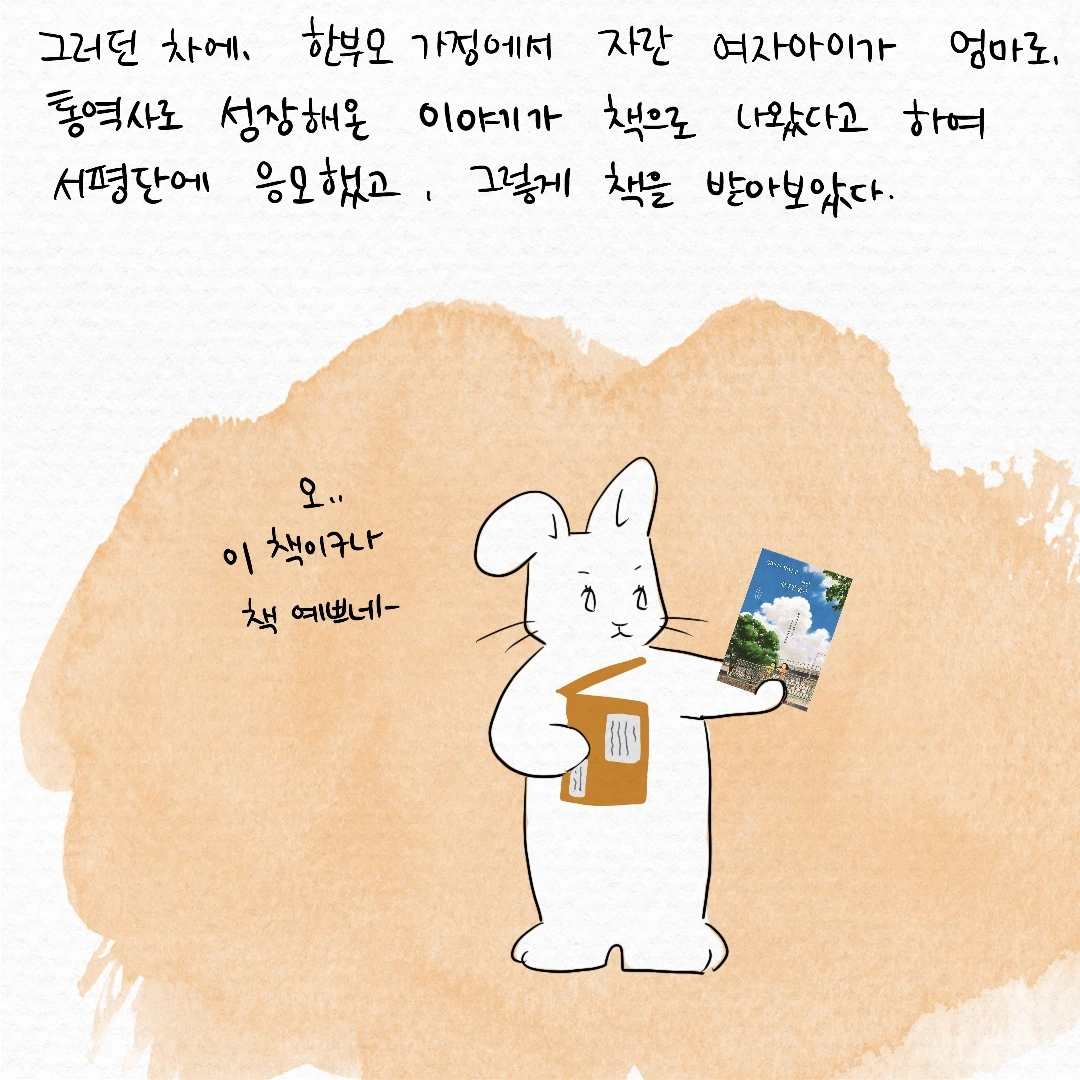 그러던 차에, 한부모 가정에서 자란 여자아이가 엄마로,
통역사로 성장해온 이야기가 책으로 나왔다고 하여
서평단에 응모했고, 그렇게 책을 받아보았다.
오..
이 책이구나
책 예쁘네-